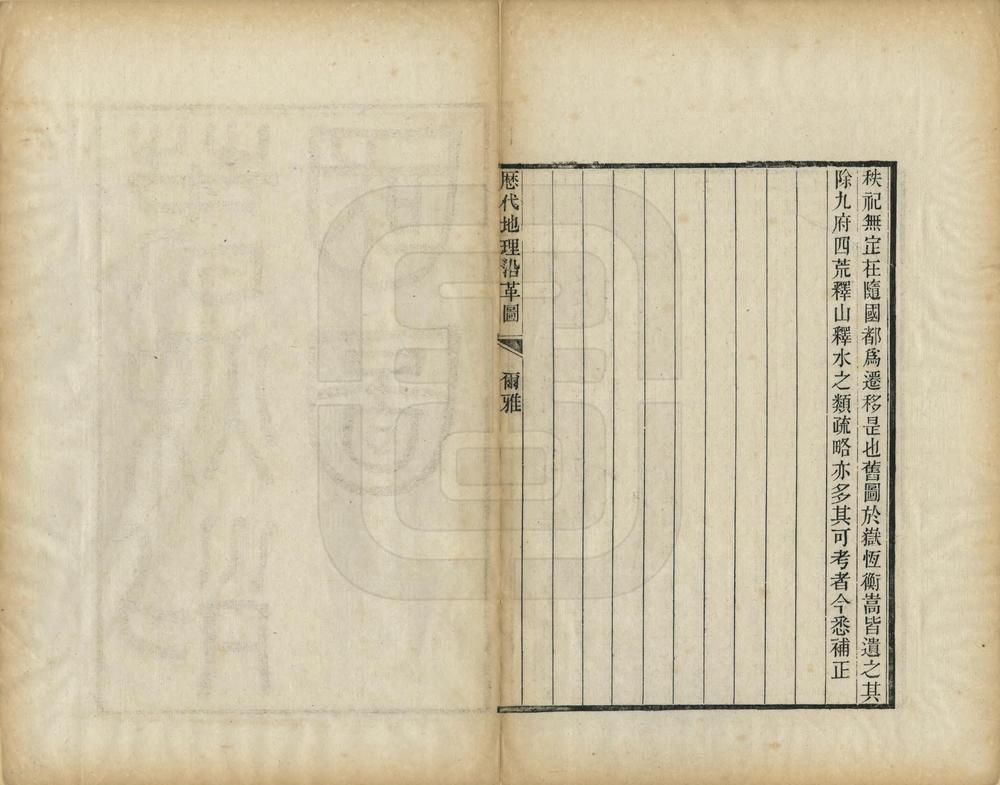 秩祀無定在隨國都爲遷移是也舊圖於嶽恆衡嵩皆遺之其
除九府四荒釋山釋水之類疏略亦多其可考者今悉補正
歷代地理沿革圖 爾雅